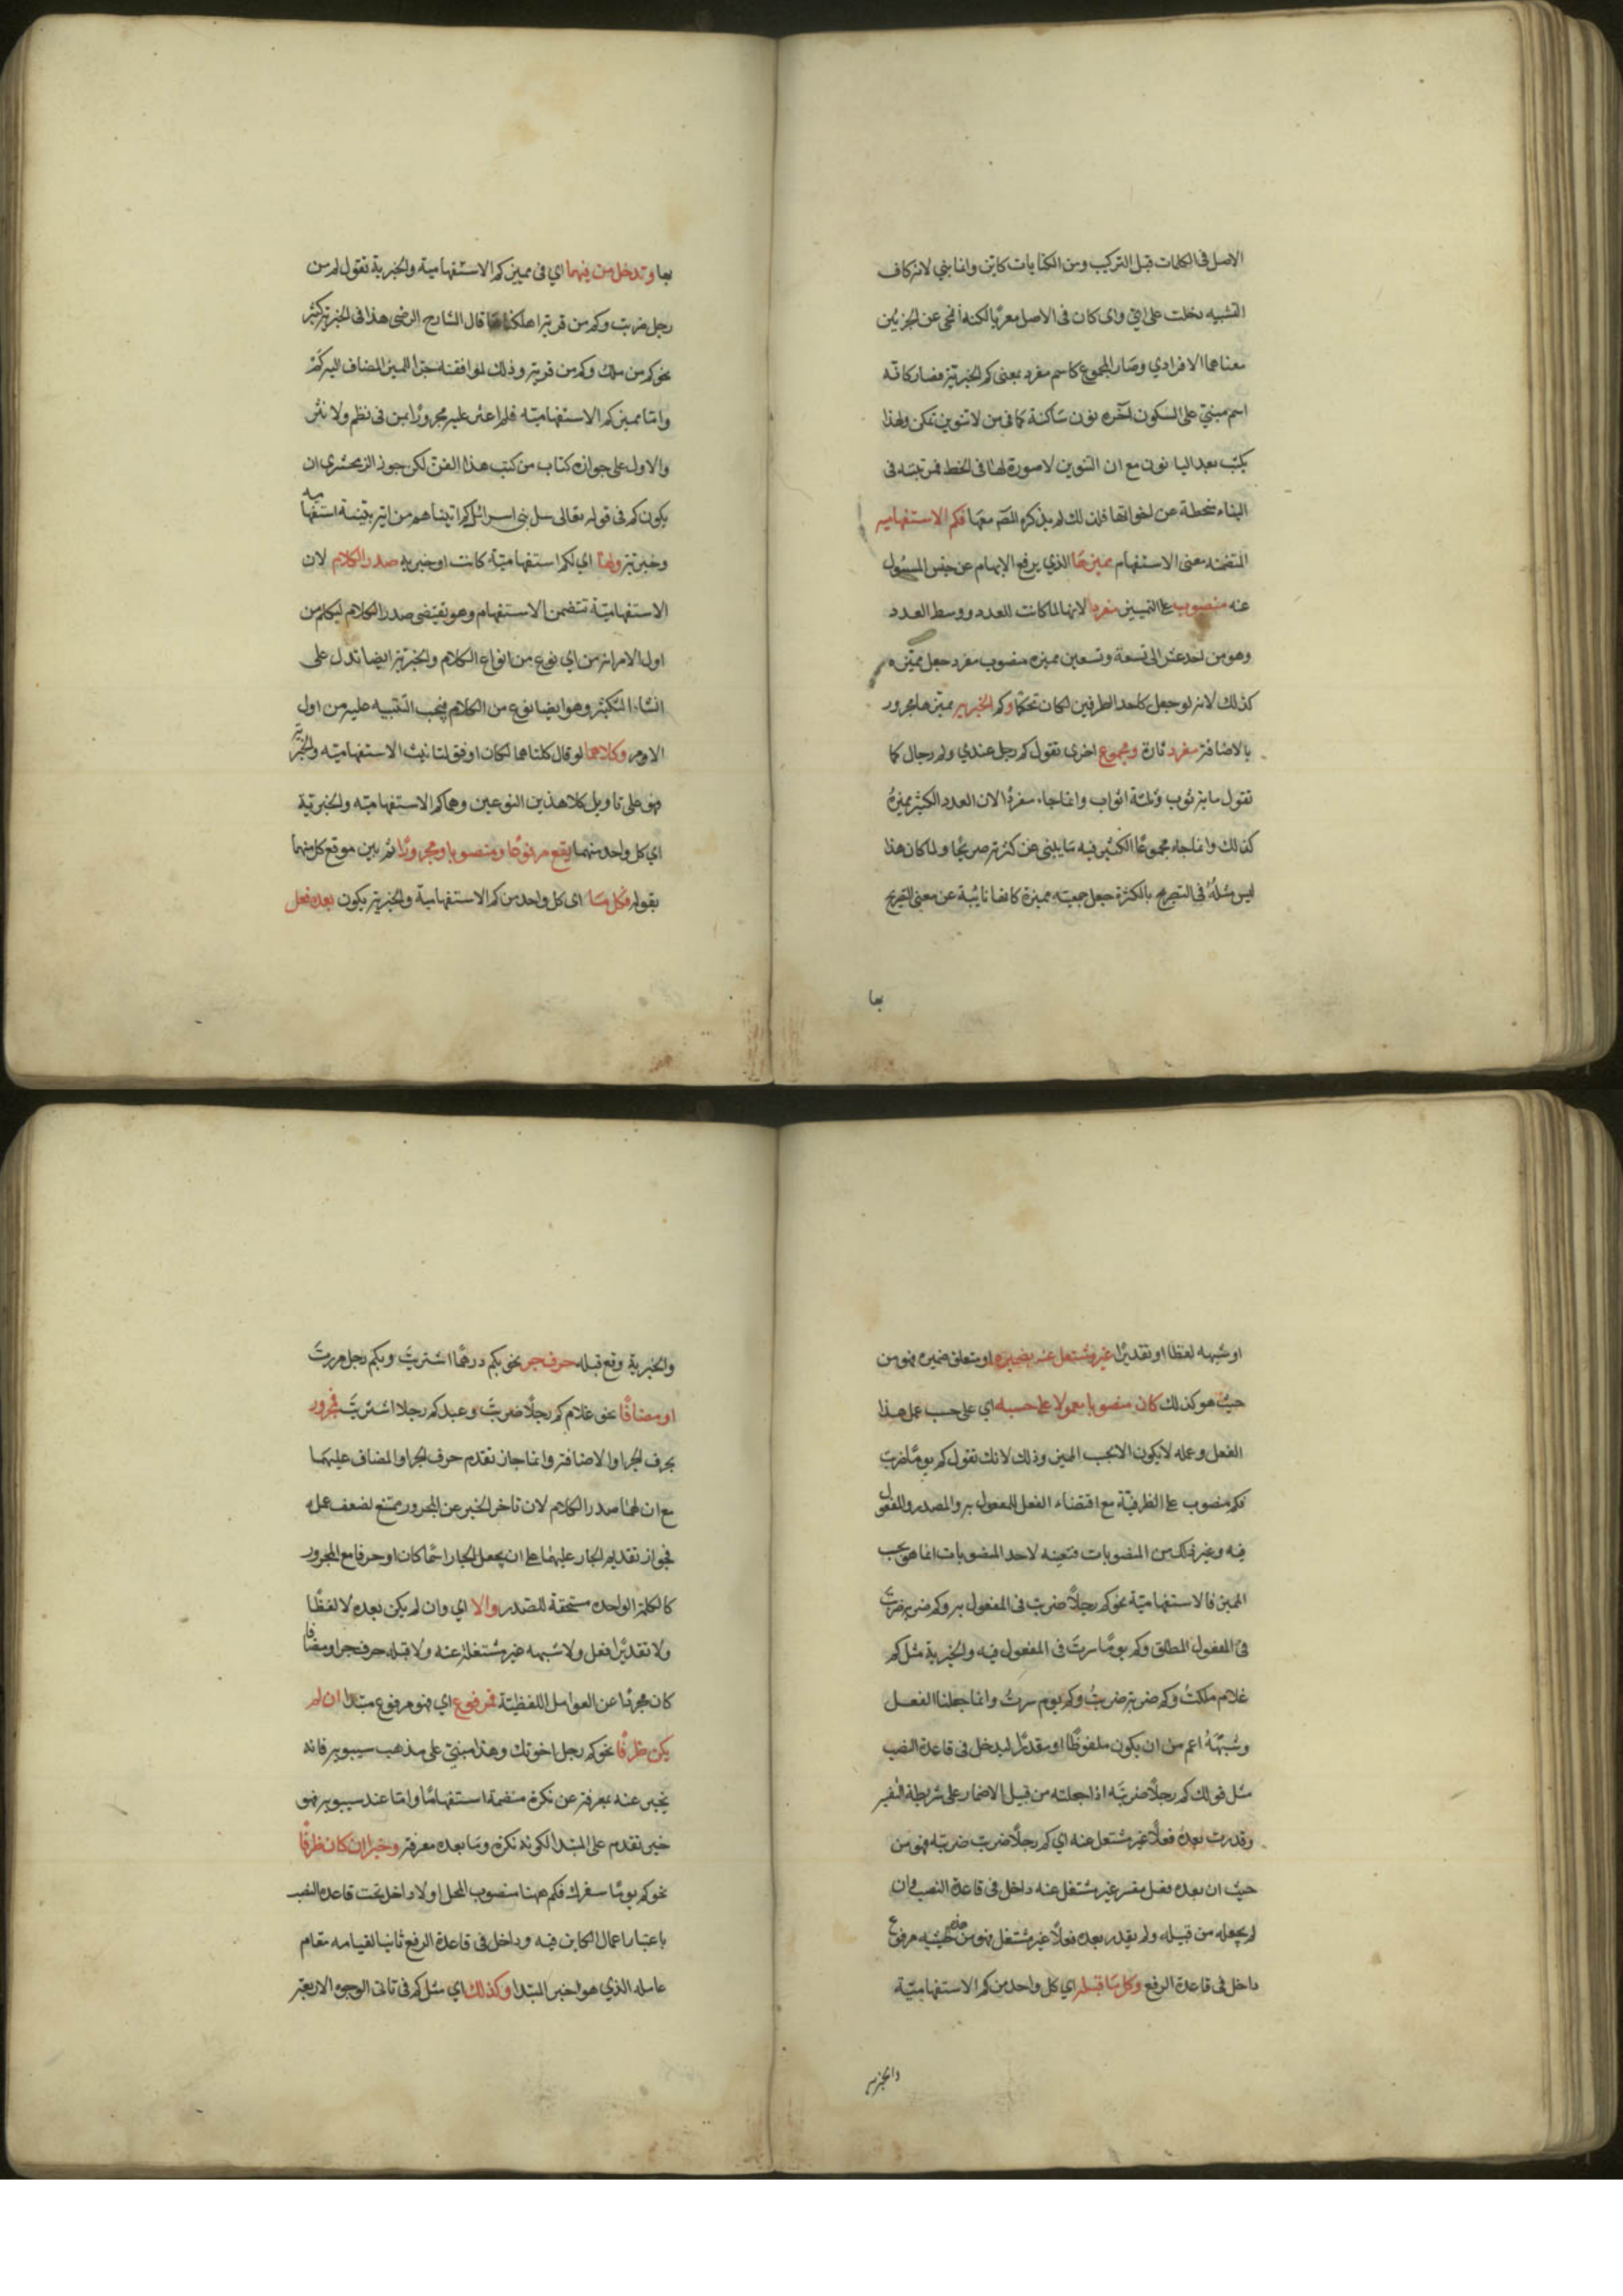 الاصل فى الكلمات قبل التركيب ومن الكنايات كاين وانما بني لانه كاف
التشبيه دخلت على اي واى كان فى الاصل معربا لكنه انمحى عن الجزئين
معناهما الافرادي وصار المجموع كاسم مفرد بمعنى كم الخبرية فصار كانه
اسم مبني على السكون آخره نون ساكنة كما فى من لا تنوين تمكن ولهذا
يكتب بعد اليا نون مع ان التنوين لا صورة لها فى الخط فمرتبته فى
البناء منحطة عن اخواتها فلذلك لم يذكره المصم معها فكم الاستفهاميه
المتضمنه معنى الاستفهام مميزها الذي يرفع الابهام عن جنس المسئول
عنه منصوب على التمييز مفردا لانها لما كانت للعدد ووسط العدد
وهو من احد عشر الى تسعة وتسعين مميزه منصوب مفرد جعل مميزه
كذلك لانه لو جعل كاحد الطرفين لكان تحكما وكم الخبريه مميزها مجرور
بالاضافة مفرد تارة ومجموع اخرى تقول كم رجل عندي وكم رجال كما
تقول ماية ثوب وثلثة اثواب وانما جاء مفردا لان العدد الكثير مميزه
كذلك وانما جاء مجموعا لان الكثير فيه ما ينبى عن كثرته صريحا ولما كان هذا
ليس مثله فى التصريح بالكثرة جعل جمعيته مميزة كانها نايبة عن معنى التصريح
بها
بها وتدخل من فيهما اي فى مميز كم الاستفهامية والخبرية تقول كم من
رجل ضربت وكم من قرية اهلكناها قال الشارح الرضى هذا فى الخبرية كثير
نحو كم من ملك وكم من قرية وذلك لموافقته جر المميز المضاف اليه كم
واما مميز كم الاستفهامية فلم اعثر عليه مجرورا بمن فى نظم ولا نثر
والاول على جوازه كتاب من كتب هذا الفن لكن جوز الزمخشري ان
يكون كم فى قوله تعالى سل بنى اسرائيل كم اتيناهم من اية بينة استفهاميه
وخبرية ولها اي لكم استفهامية كانت او خبرية صدر الكلام لان
الاستفهامية تتضمن الاستفهام وهو يقتضى صدر الكلام ليعلم من
اول الامر انه من اي نوع من انواع الكلام والخبرية ايضا تدل على
انشاء التكثير وهو ايضا نوع من الكلام فيجب التنبيه عليه من اول
الامر وكلاهما لو قال كلتاهما لكان اوفق لتانيث الاستفهامية والخبرية
فهو على تاويل كلا هذين النوعين وهما كم الاستفهامية والخبرية
اي كل واحد منهما يقع مرفوعا ومنصوبا ومجرورا ثم بين موقع كل منهما
بقوله فكل ما اى كل واحد من كم الاستفهامية والخبرية يكون بعده فعل
او شبهه لفظا او تقديرا غير مشتغل عنه بضميره او متعلق ضميره فهو من
حيث هو كذلك كان منصوبا معمولا على حسبه اي على حسب عمل هذا
الفعل وعمله لا يكون الا بحسب المميز وذلك لانك تقول كم يوما ضربت
فكم منصوب على الظرفية مع اقتضاء الفعل المفعول به والمصدر والمفعول
فيه وغير ذلك من المنصوبات فتعينه لاحد المنصوبات انما هو بحسب
المميز فالاستفهامية نحو كم رجلا ضربت فى المفعول به وكم ضربة ضربت
فى المفعول المطلق وكم يوما سرت فى المفعول فيه والخبرية مثل كم
غلام ملكت وكم ضربة ضربت وكم يوم سرت وانما جعلنا الفعل
وشبهه اعم من ان يكون ملفوظا او مقدرا ليدخل فى قاعدة النصب
مثل قولك كم رجلا ضربته اذا جعلته من قبيل الاضمار على شريطة التفسير
وقدرت بعده فعلا غير مشتغل عنه اي كم رجلا ضربت ضربته فهو من
حيث ان بعده فعل مفسر غير مشتغل عنه داخل فى قاعدة النصب وان
لم يجعله من قبيله ولم يقدر بعده فعلا غير مشتغل فهو من حيثيه مرفوع
داخل فى قاعدة الرفع وكل ما قبله اي كل واحد من كم الاستفهامية
والخبريه
والخبرية وقع قبله حرف جر نحو بكم درهما اشتريت وبكم رجل مررت
او مضافا نحو غلام كم رجلا ضربت وعبد كم رجلا اشتريت فمجرور
بحرف الجر او الاضافة وانما جاز تقدم حرف الجر او المضاف عليهما
مع ان لهما صدر الكلام لان تاخر الخبر عن المجرور ممتنع لضعف عمله
فجواز تقديم الجار عليهما على ان يجعل الجار اسما كان او حرفا مع المجرور
كالكلمة الواحده مستحقة للصدر والا اي وان لم يكن بعده لا لفظا
ولا تقديرا فعل ولا شبهه غير مشتغل عنه ولا قبله حرف جر او مضافا
كان مجردا عن العوامل اللفظية فمرفوع اي فهو مرفوع مبتدا ان لم
يكن ظرفا نحو كم رجل اخوتك وهذا مبني على مذهب سيبويه فانه
يخبر عنده بمعرفة عن نكرة متضمنة استفهاما واما عند سيبويه فهو
خبر تقدم على المبتدا لكونه نكرة وما بعده معرفة وخبر ان كان ظرفا
نحو كم يوما سفرك فكم ههنا منصوب المحل اولا داخل تحت قاعدة النصب
باعتبار اعمال الكاين فيه وداخل فى قاعدة الرفع ثانيا لقيامه مقام
عامله الذي هو الخبر المبتدا وكذلك اي مثل كم فى تاتى الوجوه الاربعة